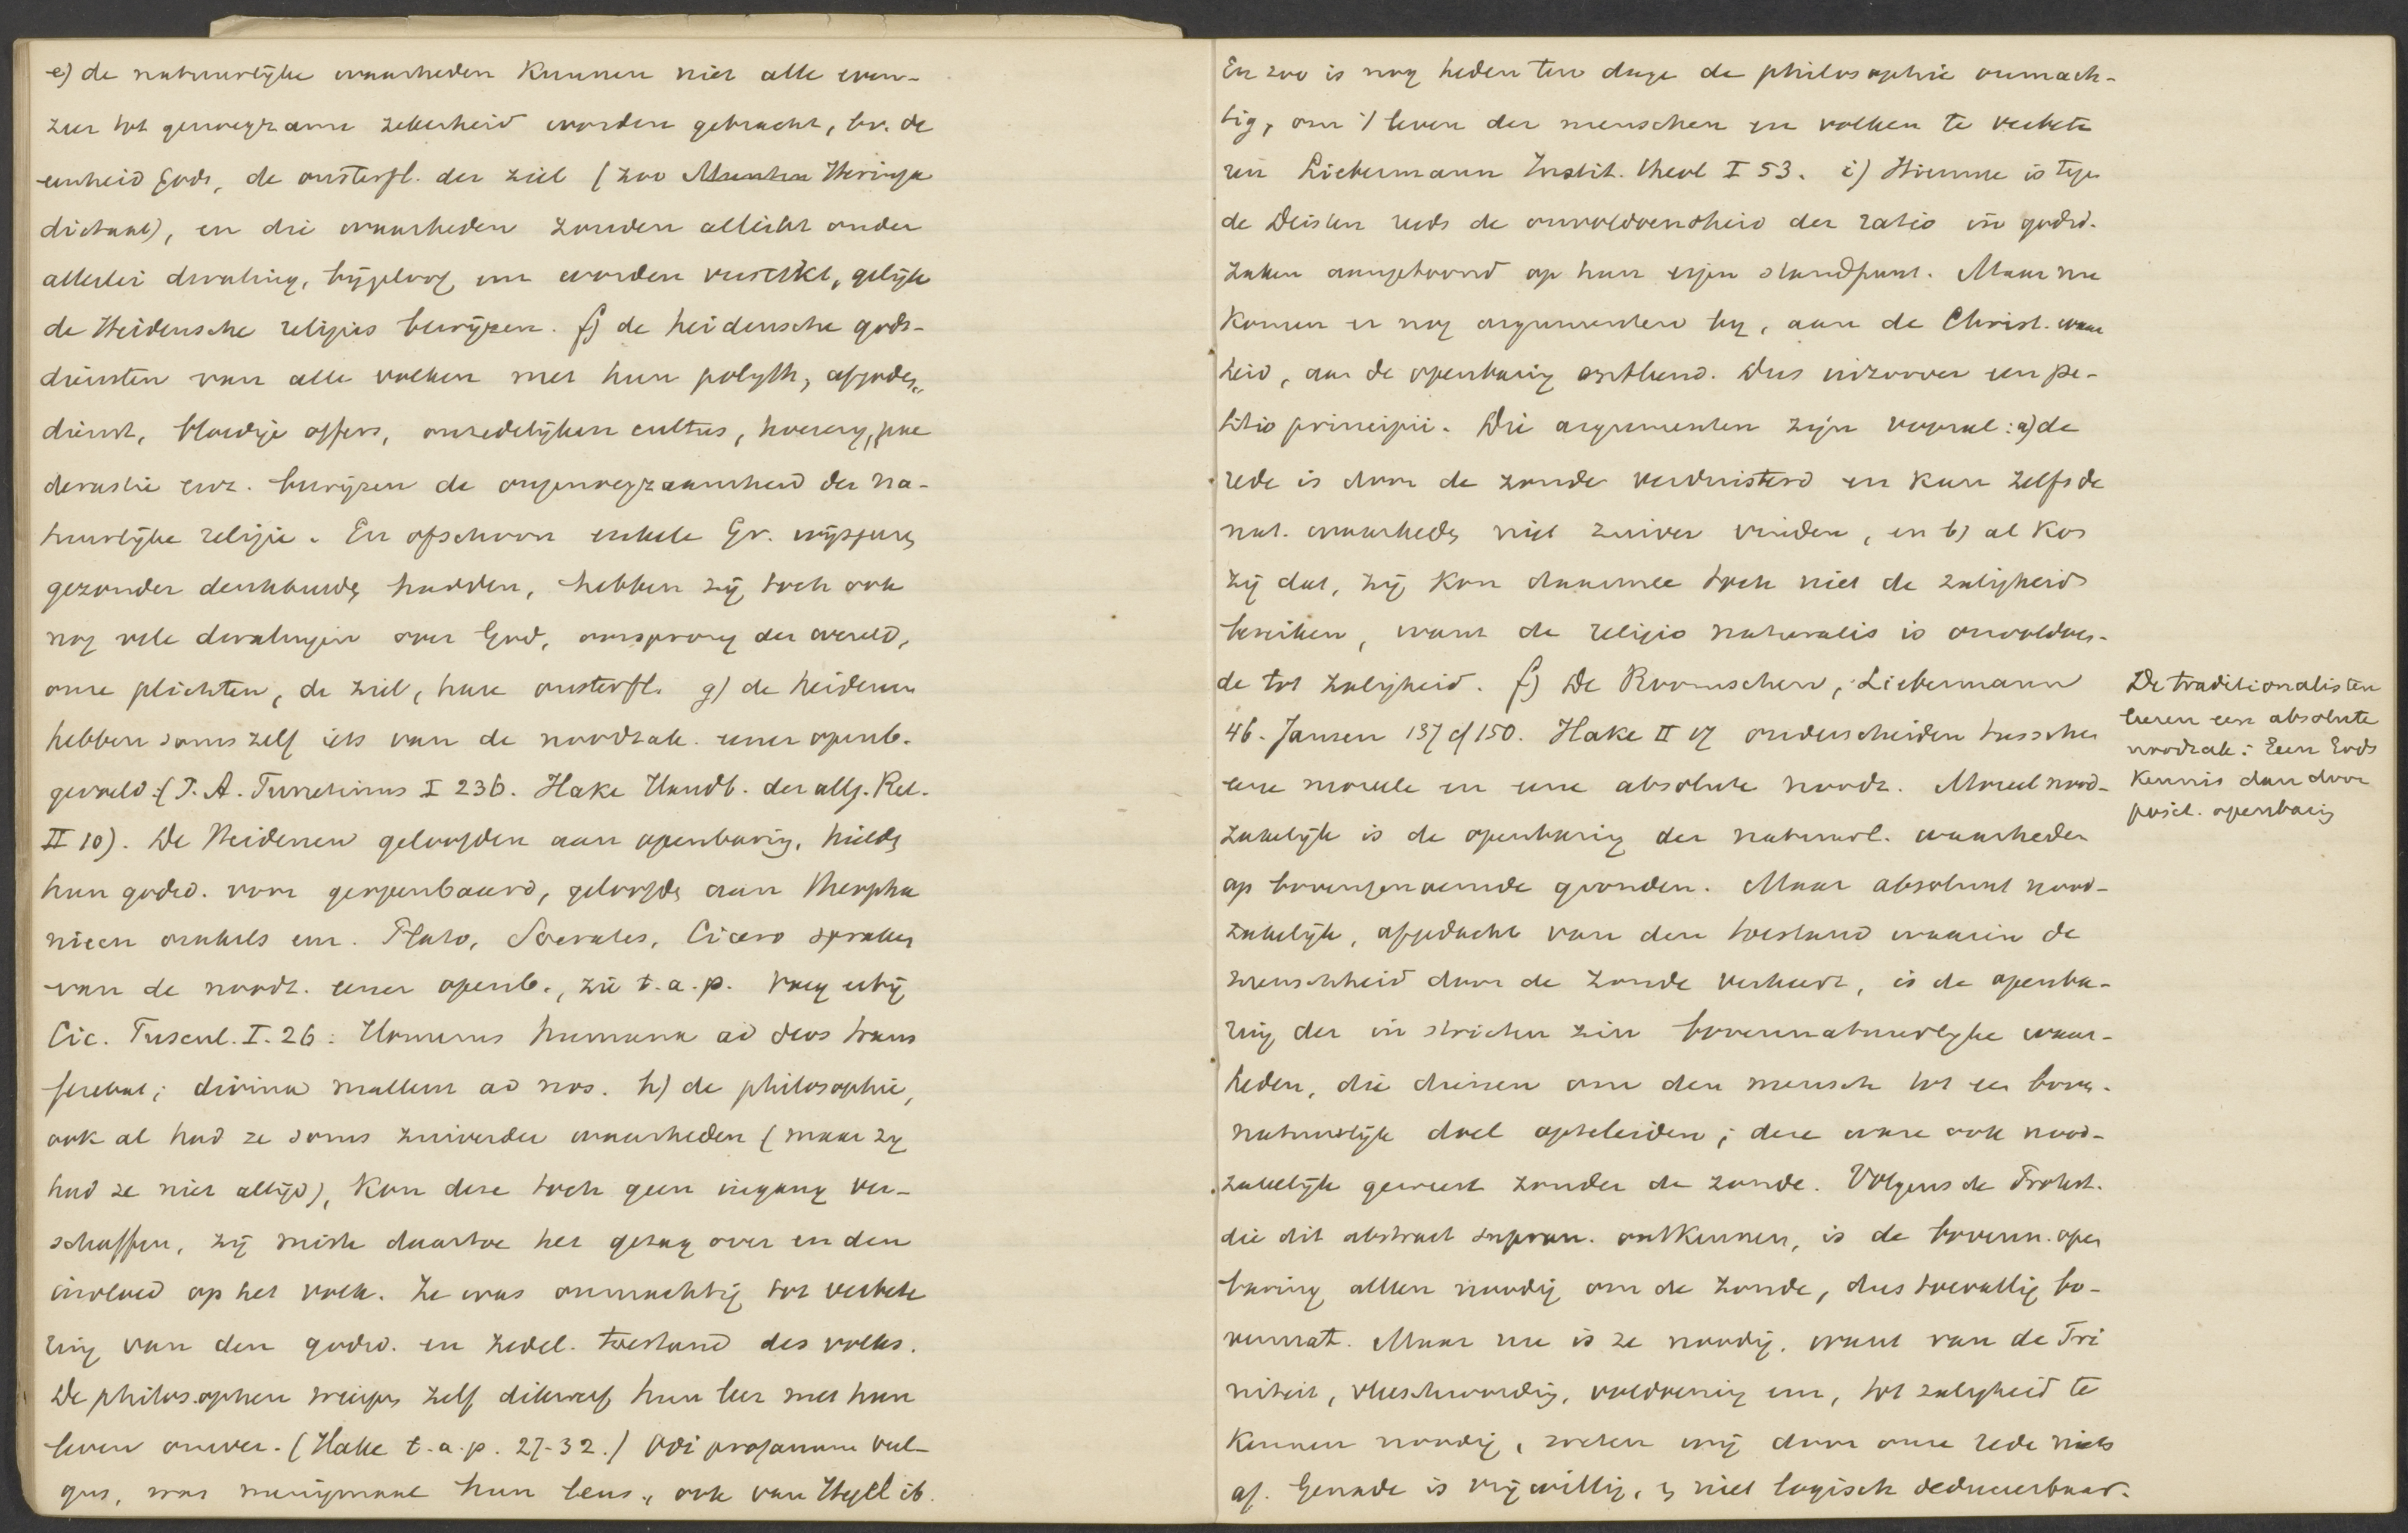 e) de natuurlijke waarheden kunnen niet alle even-
zeer tot genoegzame zekerheid worden gebracht, bv. de
eenheid Gods, de onsterfl. der ziel (zoo Heringa
dictaat), en die waarheden zouden allicht onder
allerlei dwaling, bijgeloof enz worden verstikt, gelijk
de Heidensche religies bewijzen. f) de heidensche gods-
diensten van alle volken met hun polyth, afgoden-
dienst, bloedige offers, onzedelijken cultus, hoererij, pae
derastie enz. bewijzen de ongenoegzaamheid der na-
tuurlijke religie. En ofschoon enkele Gr. wijsgeren
gezonder denkbeelden hadden, hebben zij toch ook
nog vele dwalingen over God, oorsprong der wereld,
onze plichten, de ziel, hare onsterfl. g) de heidenen
hebben soms zelf iets van de noodzak. eener openb.
gevoeld (J. A. Turretinus I 236. Hake Handb. der allg. Rel.
II 10). De Heidenen geloofden aan openbaring, hielden
hun godsd. voor geopenbaard, geloofden aan theopha
nieen orakels enz. Plato, Socrates, Cicero spraken
van de noodz. eener openb., zie t.a.p. Voeg erbij
Cic. Tuscul. I. 26: Homerus humana ad deos trans
ferebat; divina mallem ad nos. h) de philosophie,
ook al had ze soms zuiverder waarheden (maar zij
had ze niet altijd), kon deze toch geen ingang ver-
schaffen, zij miste daartoe het gezag over en den
invloed op het volk. Ze was onmachtig tot verbete
ring van den godsd. en zedel. toestand des volks.
De philosophen zelf dikwerf hun leer met hun
leven onver. (Hake t.a.p. 27-32.) Odi profanum vul-
gus, was menigmaal hun leus, ook van Hegel ib.
En zoo is nog heden ten dage de philosophie onmach-
tig, om 't leven der menschen en volken te verbete
ren Liebermann Instit. theol I 53. i) Hiermee is tegen
de Deisten reeds de onvoldoendheid der ratio in godsd.
zaken aangetoond op hun eigen standpunt. Maar nu
komen er nog argumenten bij, aan de Christ. waar
heid, aan de openbaring ontleend. Dus inzoover een pe-
titio principii. Die argumenten zijn vooral: a) de
rede is door de zonde verduisterd en kan zelfs de
nat. waarheden niet zuiver vinden, en b) al kon
zij dat, zij kon daarmee toch niet de zaligheid
bereiken, want de religio naturalis is onvoldoen-
de tot zaligheid. f) De Roomschen, Liebermann
46. Jansen 137 cf 150. Hake II 17 onderscheiden tusschen
eene moreele en eene absolute noodz. Moreel nood-
zakelijk is de openbaring der natuurl. waarheden
op bovengenoemde gronden. Maar absoluut nood-
zakelijk, afgedacht van den toestand waarin de
menschheid door de zonde verkeert, is de openba-
ring der in strikten zin bovennatuurlijke waar-
heden, die dienen om den mensch tot een boven-
natuurlijk doel opteleiden; deze ware ook nood-
zakelijk geweest zonder de zonde. Volgens de Protest.
die dit abstract supran. ontkennen, is de bovenn. open
baring alleen noodig om de zonde, dus toevallig bo-
vennat. Maar nu is ze noodig, want van de Tri
niteit, vleeschwording, voldoening enz, tot zaligheid te
kennen noodig, weten wij door onze rede niets
af. Genade is vrijwillig, is niet logisch deduceerbaar.
De traditionalisten
leeren een absolute
noodzak: Geen Gods
kennis dan door
posit. openbaring